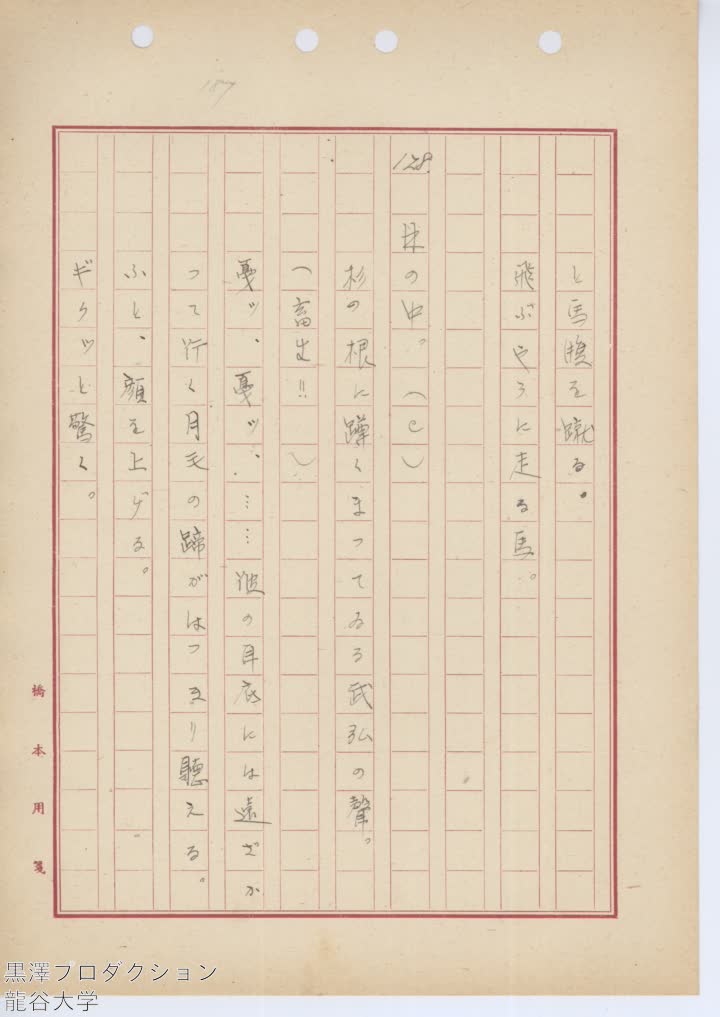 187
と馬腹を蹴る。
飛ぶやうに走る馬。
128.
林の中。(C)
杉の根に蹲くまつてゐる武弘の聲。
(畜生!!)
戞ッ、戞ッ、……彼の耳底には遠ざか
つて行く月毛の蹄がはつきり聽える。
ふと、顔を上げる。
ギクッと驚く。
橋本用箋
黒澤プロダクション
龍谷大学